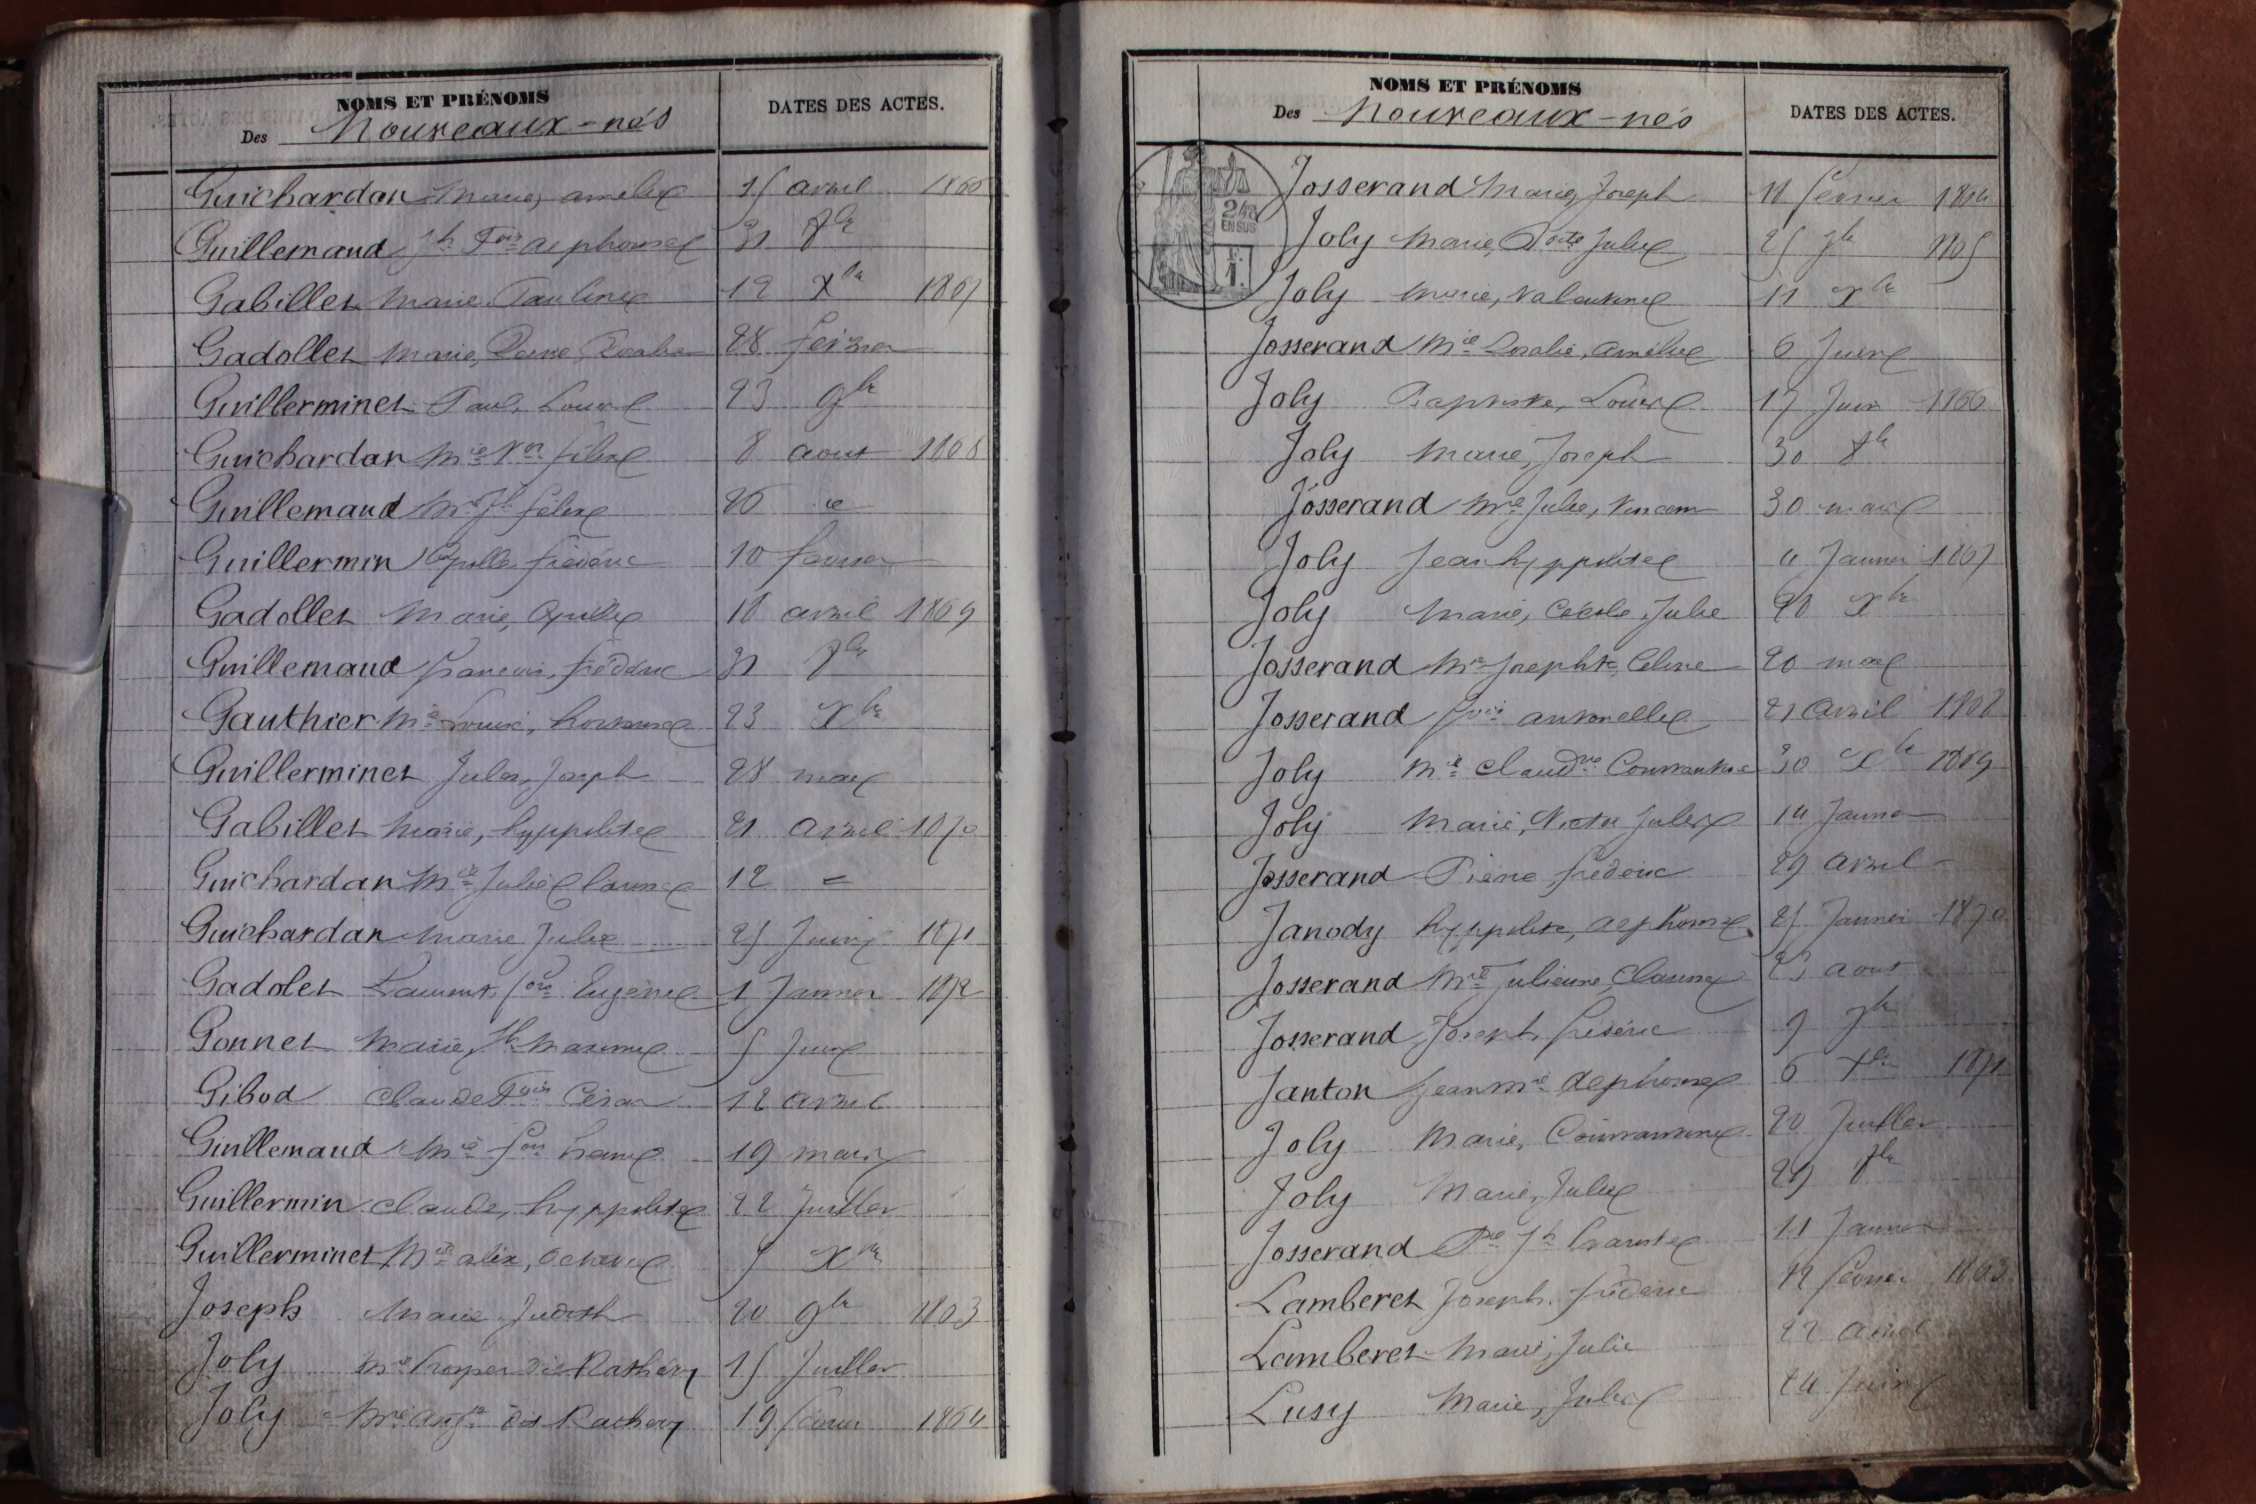 NOMS ET PRÉNOMS
Des Nouveaux-nés
DATES DES ACTES.
Guichardan Marie, amélie 15 avril 1866
Guillemaud Jh Fois alphonse 31 8bre
Gabillet Marie Pauline 12 Xbre 1867
Gadollet Marie, 28 février
Guillerminet Paul, Louis 23 9bre
Guichardan Mie félix 8 aout 1868
Guillemaud Mie Jh félix 26
Guillermin frédéric 10 février
Gadollet Marie, 18 avril 1869
Guillemaud françois, frédéric 31 8bre
Gauthier Mie Louise, 23 Xbre
Guillerminet Jules, Joseph 28 mai
Gabillet Marie, hyppolite 21 avril 1870
Guichardan Mie Julie Clarisse 12 =
Guichardan Marie Julie 25 Juin 1871
Gadolet Laurent, fois Eugène 1 Janvier 1872
Gonnet Marie, Jh Maxime 5 Juin
Gibod Claude Fois César 12 avril
Guillemaud Mie 19 mars
Guillermin Claude, hyppolite 22 Juillet
Guillerminet Mie alix, octavie 5 Xbre
Joseph Marie Judith 20 9bre 1863
Joly Mie Prosper dit Rathery 15 Juillet
Joly Mie dit Rathery 19 février 1864
NOMS ET PRÉNOMS
Des Nouveaux-nés
DATES DES ACTES.
2/10
EN SUS
F.
1.
Josserand Marie, Joseph 11 février 1864
Joly Marie, Julie 25 7bre 1865
Joly Marie, Valentine 11 Xbre
Josserand Mie Rosalie, Amélie 6 Juin
Joly Baptiste, Louis 17 Juin 1866
Joly Marie, Joseph 30 8bre
Josserand Mie Julie, Vincent 30 mai
Joly Jean hyppolite 4 Janvier 1867
Joly Marie, Cécile Julie 28 Xbre
Josserand Mie Josephte, Celine 20 mai
Josserand fois antonelle 21 avril 1868
Joly Mie Claudne Constantine 30 Xbre 1869
Joly Marie, Victor Jules 14 Janvier
Josserand Pierre frédéric 29 avril
Janody hyppolite, alphonse 25 Janvier 1870
Josserand Mie Julienne, Clarisse 23 aout
Josserand Joseph, frédéric 9 7bre
Janton Jean Mie alphonse 6 Xbre 1871
Joly Marie, Constantine 20 Juillet
Joly Marie, Julie 29 8bre
Josserand Jh 11 Janvier
Lamberet Joseph, frédéric 12 février 1863
Lamberet Marie, Julie 22 avril
Lusy Marie, Julie 24 Juin